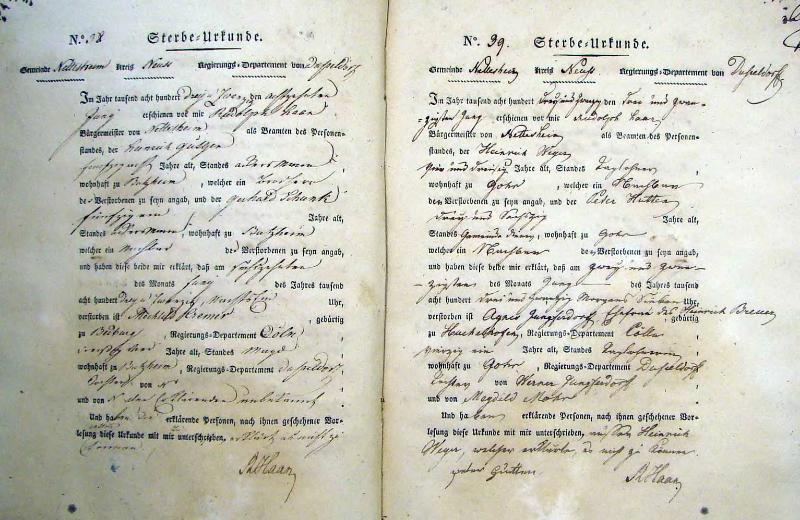 N.º 38 Sterbe-Urkunde.
Gemeinde Nettesheim Kreis Neuss Regierungs-Departement von Dusseldorf
Im Jahr tausend acht hundert drey u. zwanzig den achtzehnten
Juny erschienen vor mir Rudolph Haan
Bürgermeister von Nettesheim als Beamten des Personen-
standes, der
Jahre alt, Standes Ackersmann,
wohnhaft zu Butzheim, welcher ein
des Verstorbenen zu seyn angab, und der Gerhard Schunk
Jahre alt,
Standes Ackersmann, wohnhaft zu Butzheim
welcher ein Nachbar der Verstorbenen zu seyn angab,
und haben diese beide mir erklärt, daß am
des Monats Juny des Jahres tausend
acht hundert drey u. zwanzig, Nachts zwölf Uhr,
verstorben ist Kremer, gebürtig
zu, Regierungs-Departement Cöln
Jahre alt, Standes Magd
wohnhaft zu Butzheim, Regierungs-Departement Dusseldorf
Tochter von N
und von N der unbekannt.
Und haben die erklärende Personen, nach ihnen geschehener Vor-
lesung diese Urkunde mit mir unterschrieben, erklärt es nicht zu
können.
R Haan
N.º 39. Sterbe-Urkunde.
Gemeinde Nettesheim Kreis Neuss Regierungs-Departement von Dusseldorf
Im Jahr tausend acht hundert drey und zwanzig den drei und zwan-
zigsten Juny erschienen vor mir Rudolph Haan
Bürgermeister von Nettesheim als Beamten des Personen-
standes, der Heinrich Weyer
und dreissig Jahre alt, Standes Taglöhner,
wohnhaft zu Gohr, welcher ein Nachbar
der Verstorbenen zu seyn angab, und der Peter Hütten
drey und sechzig Jahre alt,
Standes Gemeinde, wohnhaft zu Gohr
welcher ein Nachbar der Verstorbenen zu seyn angab,
und haben diese beide mir erklärt, daß am zwey und zwan-
zigsten des Monats Juny des Jahres tausend
acht hundert drei und zwanzig Morgens sieben Uhr,
verstorben ist Agnes Jungferdorf Ehefrau des Heinrich Breuer, gebürtig
zu Hackenhofen, Regierungs-Departement Cölln
vierzig ein Jahre alt, Standes Taglöhnerin
wohnhaft zu Gohr, Regierungs-Departement Dusseldorff
Tochter von Werner Jungferdorf
und von Magdild Mohr.
Und haben erklärende Personen, nach ihnen geschehener Vor-
lesung diese Urkunde mit mir unterschrieben, ausser Heinrich
Weyer welcher erklärte, es nicht zu können
peter Hütten R Haan